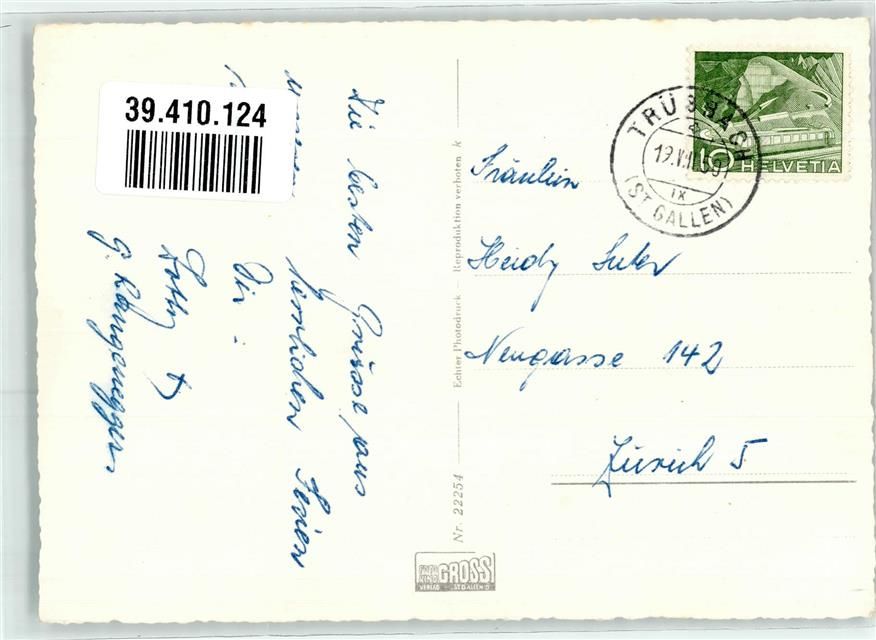 39.410.124
Die besten Grüsse aus
herrlichen Ferien
Dir -
Lotty &
G. Langenegger
Nr. 22254
Echter Photodruck — Reproduktion verboten k
GROSS
VERLAG ST GALLEN
TRÜBBACH
19.VII.59
IX
(ST GALLEN)
10 HELVETIA
Fräulein
Heidy Suter
Neugasse 142
Zürich 5